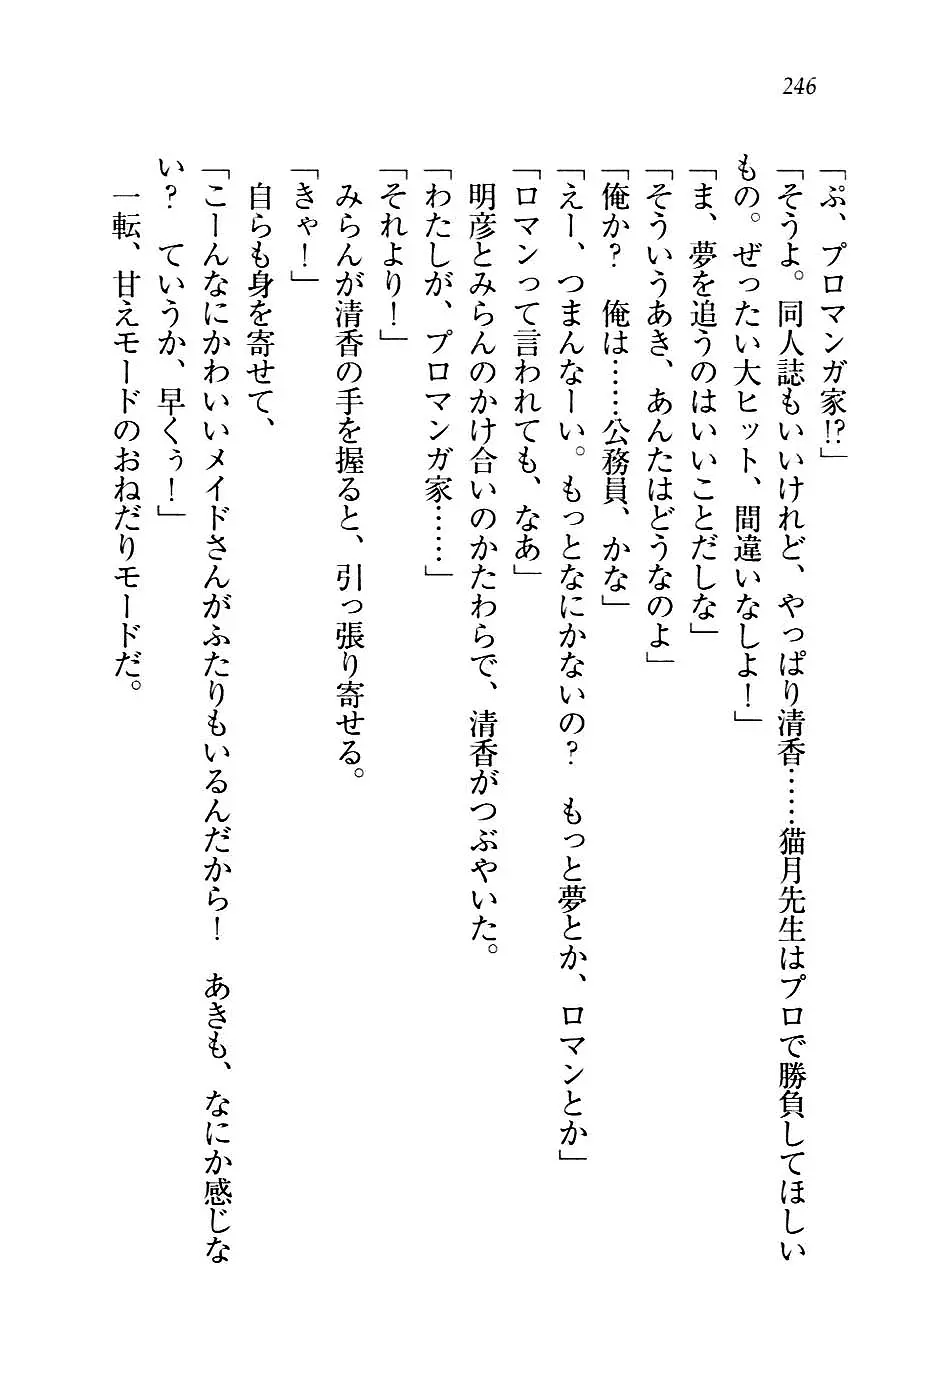 246
「ぷ、プロマンガ家!?」
「そうよ。同人誌もいいけれど、やっぱり清香……猫月先生はプロで勝負してほしい
もの。ぜったい大ヒット、間違いなしよ！」
「ま、夢を追うのはいいことだしな」
「そういうあき、あんたはどうなのよ」
「俺か？　俺は……公務員、かな」
「えー、つまんなーい。もっとなにかないの？　もっと夢とか、ロマンとか」
「ロマンって言われても、なあ」
　明彦とみらんのかけ合いのかたわらで、清香がつぶやいた。
「わたしが、プロマンガ家……」
「それより！」
　みらんが清香の手を握ると、引っ張り寄せる。
「きゃ！」
　自らも身を寄せて、
「こーんなにかわいいメイドさんがふたりもいるんだから！　あきも、なにか感じな
い？　ていうか、早くぅ！」
　一転、甘えモードのおねだりモードだ。